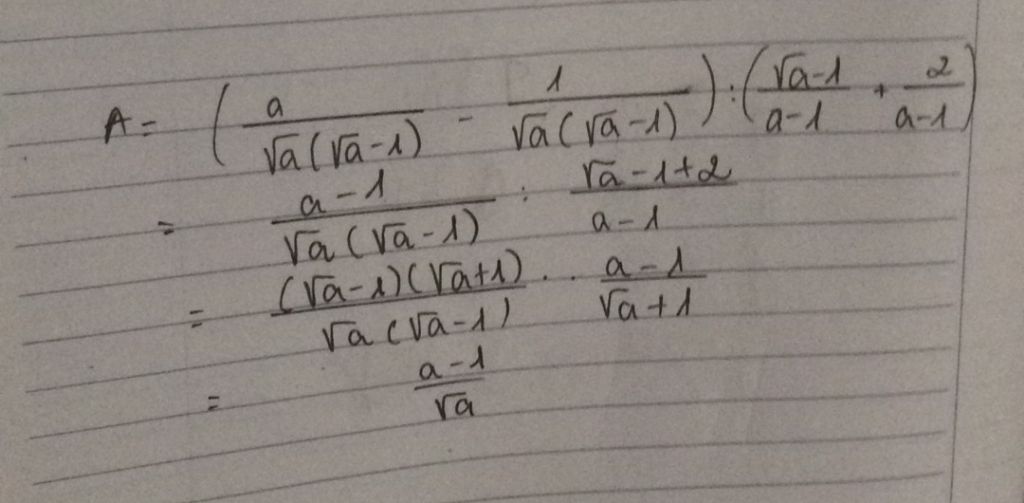 A = ( a / √a(√a-1) - 1 / √a(√a-1) ) : ( √a-1 / a-1 + 2 / a-1 )
= a-1 / √a(√a-1) : √a-1+2 / a-1
= (√a-1)(√a+1) / √a(√a-1) . . a-1 / √a+1
= a-1 / √a